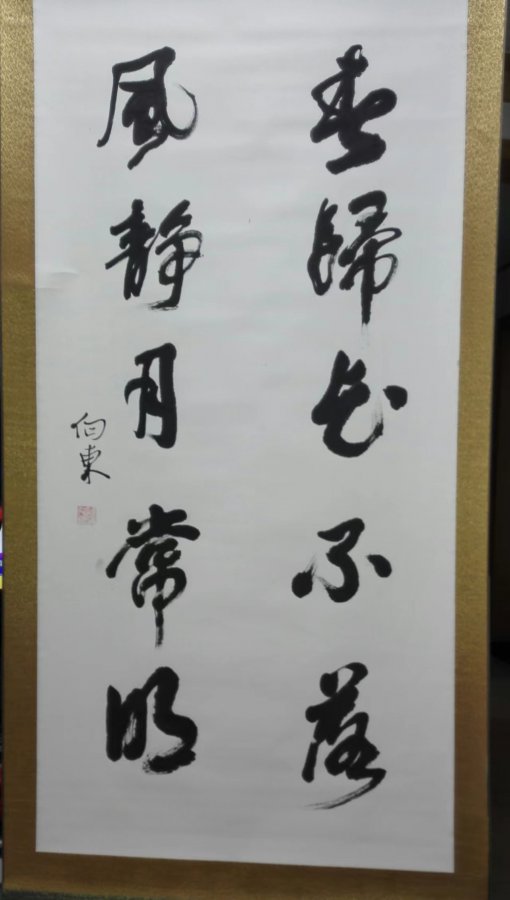 春歸花不落
風靜月常明
向東